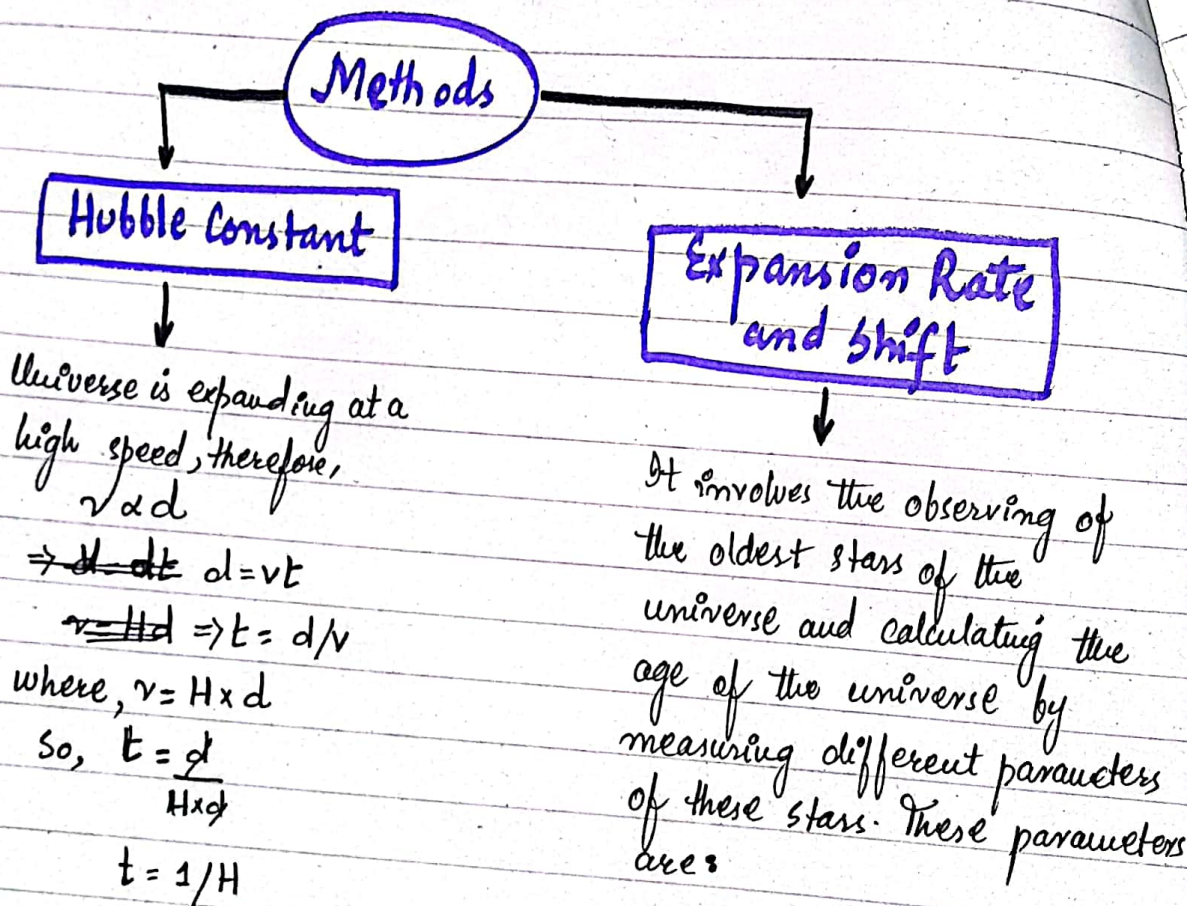 Methods
Hubble Constant
Universe is expanding at a
high speed, therefore,
v ∝ d
⇒ d = dt d = vt
v = Hd ⇒ t = d/v
where, v = H x d
So, t = d
H x d
t = 1/H
Expansion Rate
and Shift
It involves the observing of
the oldest stars of the
universe and calculating the
age of the universe by
measuring different parameters
of these stars. These parameters
are: